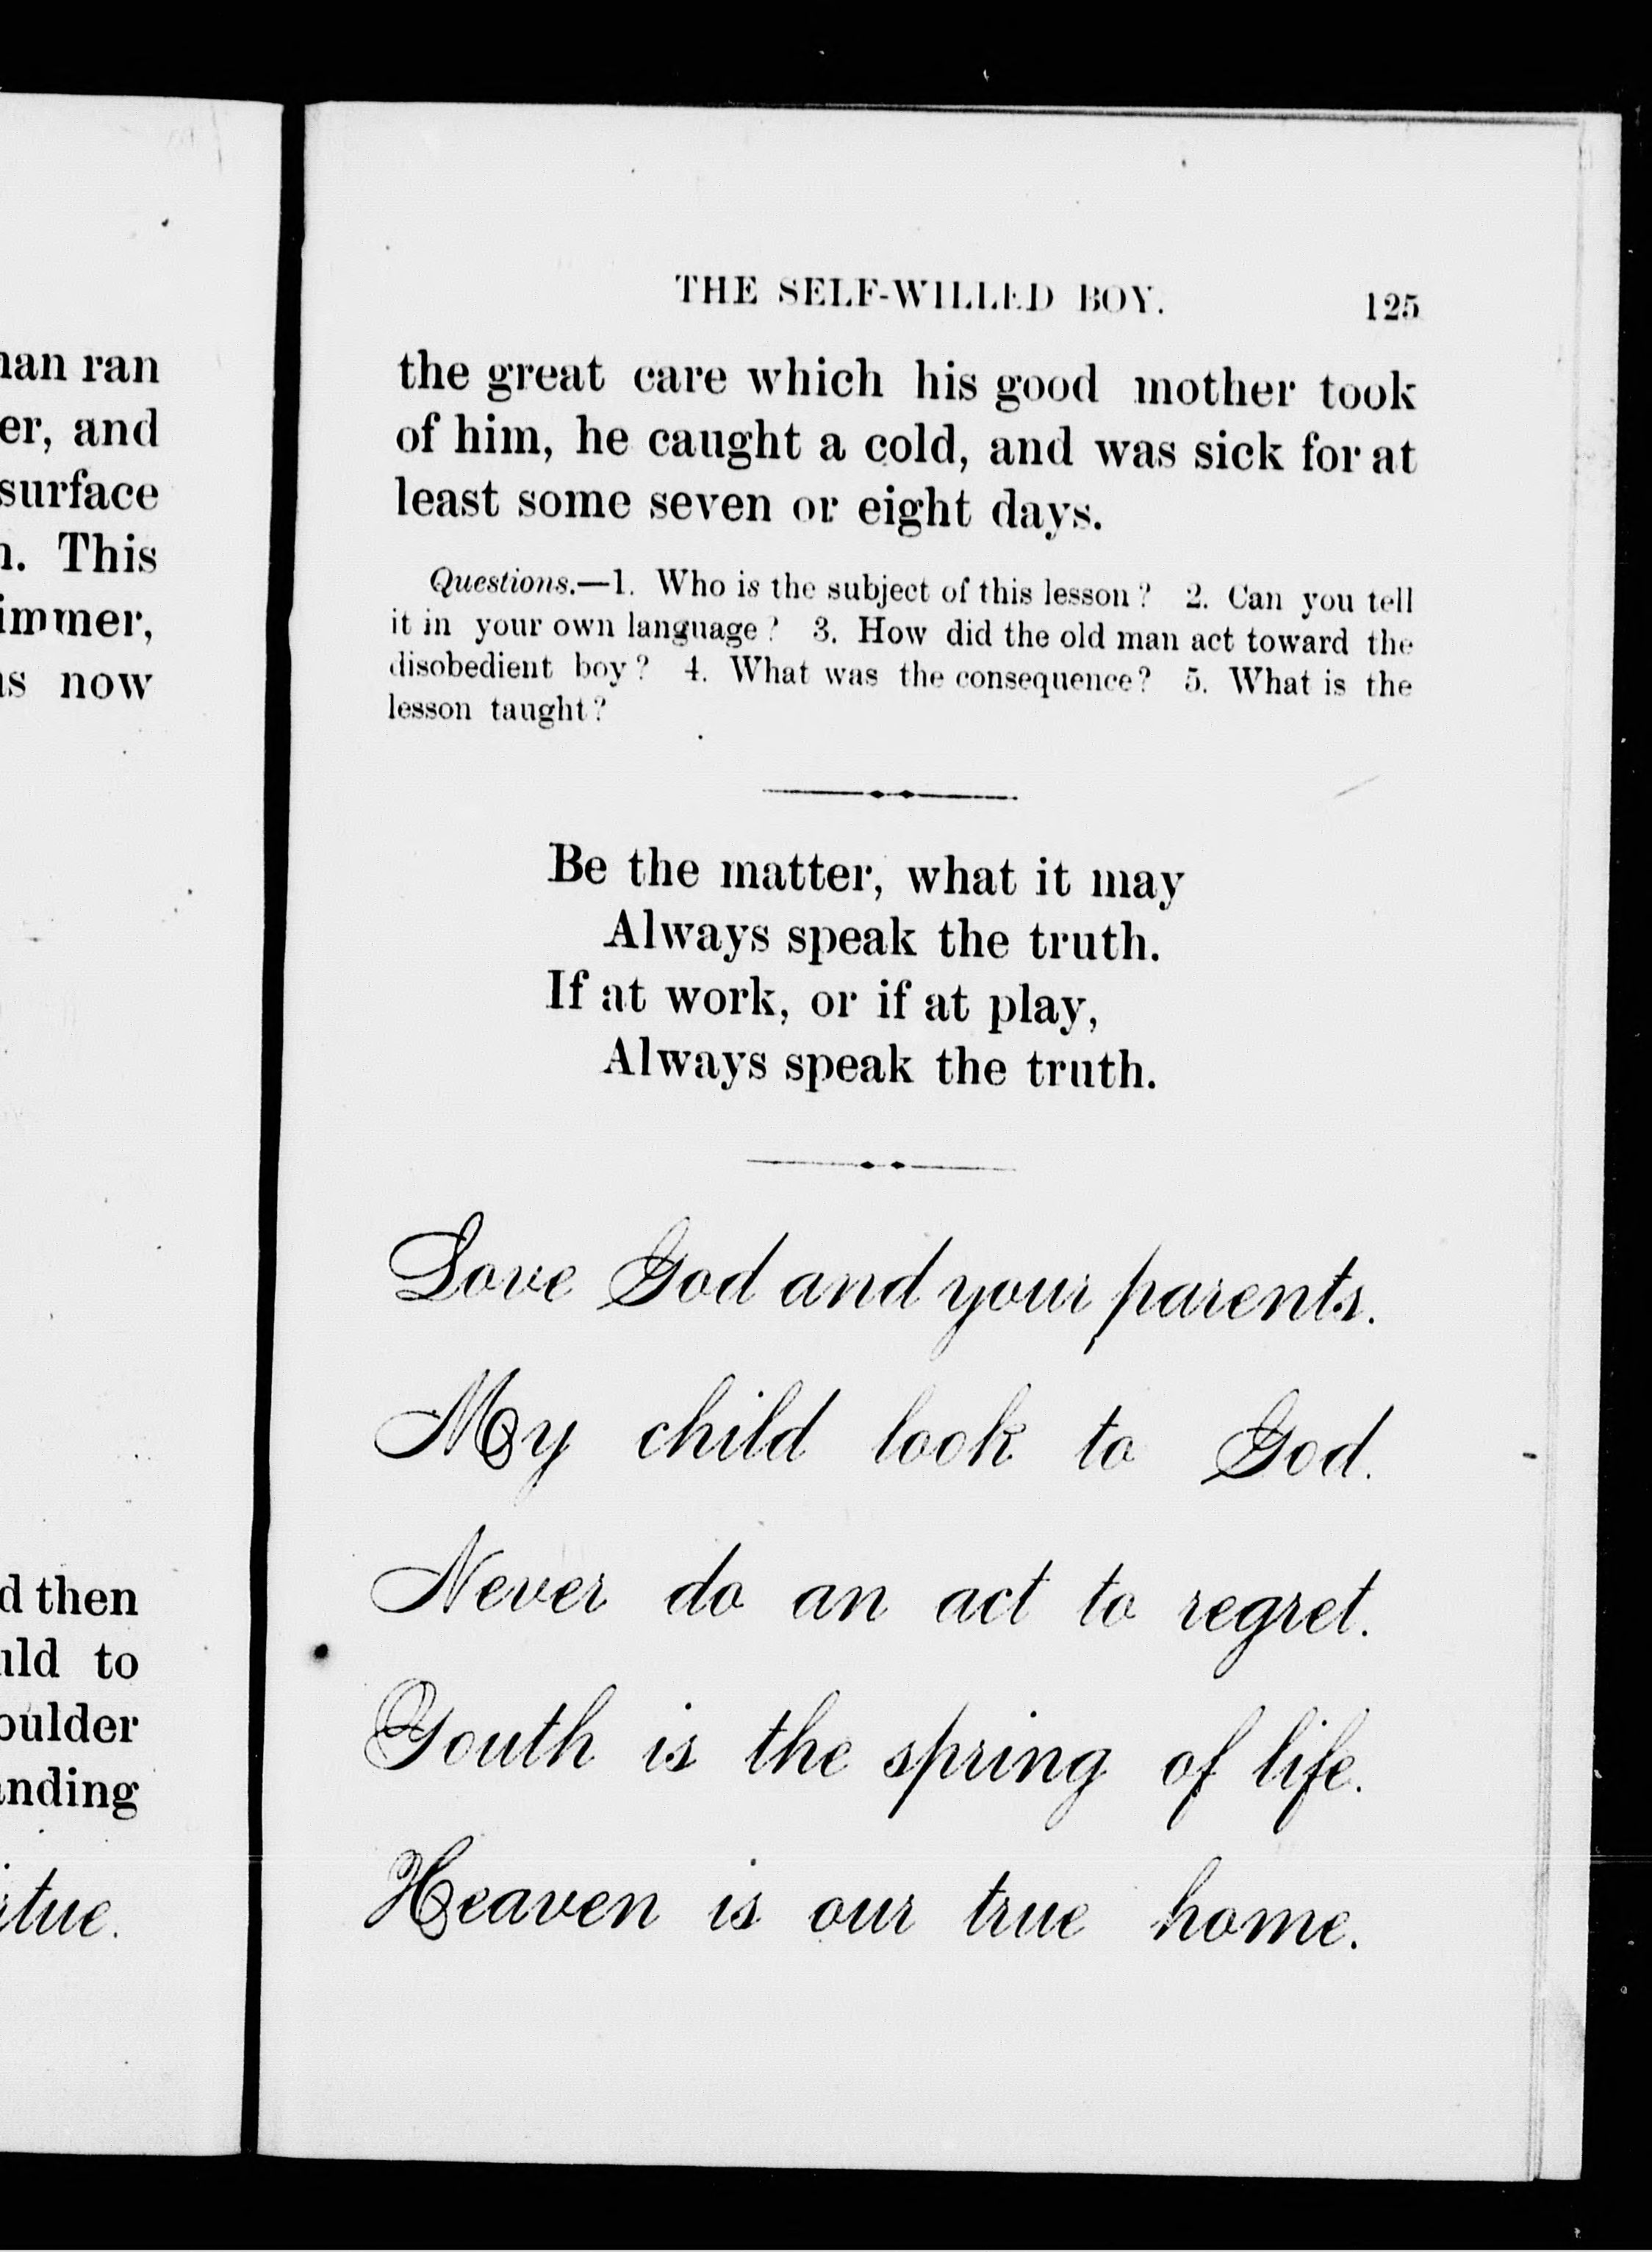 ran
er, and
surface
This
immer,
now
then
to
THE SELF-WILLED BOY. 125
the great care which his good mother took
of him, he caught a cold, and was sick for at
least some seven or eight days.
Questions.—1. Who is the subject of this lesson? 2. Can you tell
it in your own language? 3. How did the old man act toward the
disobedient boy? 4. What was the consequence? 5. What is the
lesson taught?
Be the matter, what it may
Always speak the truth.
If at work, or if at play,
Always speak the truth.
Love God and your parents.
My child look to God.
Never do an act to regret.
Youth is the spring of life.
Heaven is our true home.